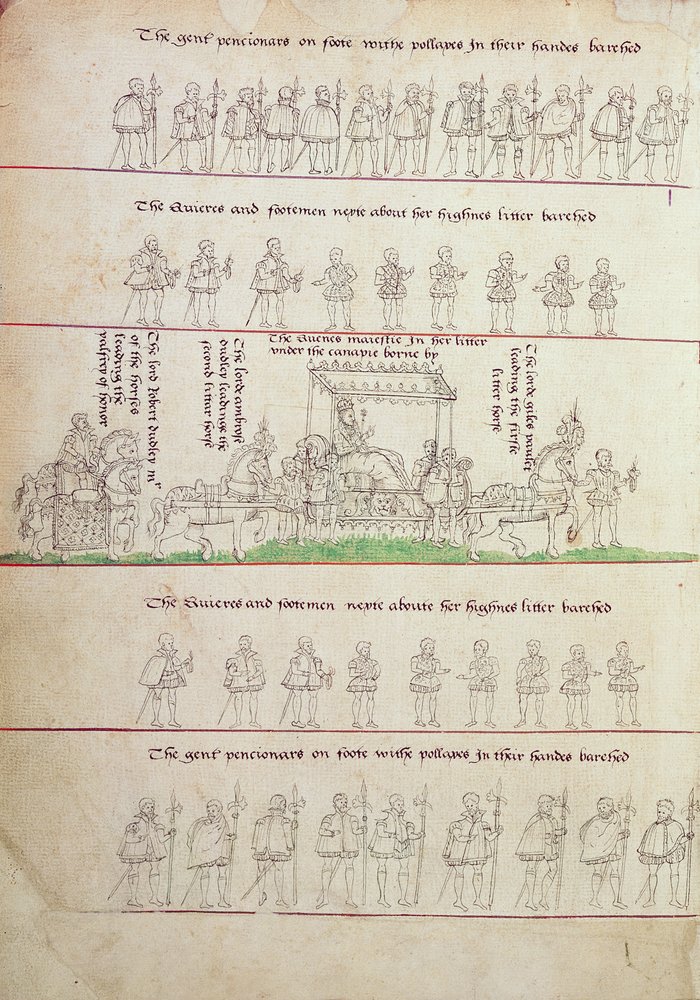 The gent pencionars on foote withe pollaxes In their handes barehed
The Quieres and footemen nexte about her highnes litter barehed
The lord Robert dudley mr
of the horses
leading the
palfrey of honor
The lord ambrose
dudley leading the
second littar horse
The Quenes maiestie In her litter
vnder the canapie borne by
The lorde giles paulet
leading the firste
litter horse
The Quieres and footemen nexte aboute her highnes litter barehed
The gent pencionars on foote withe pollaxes In their handes barehed